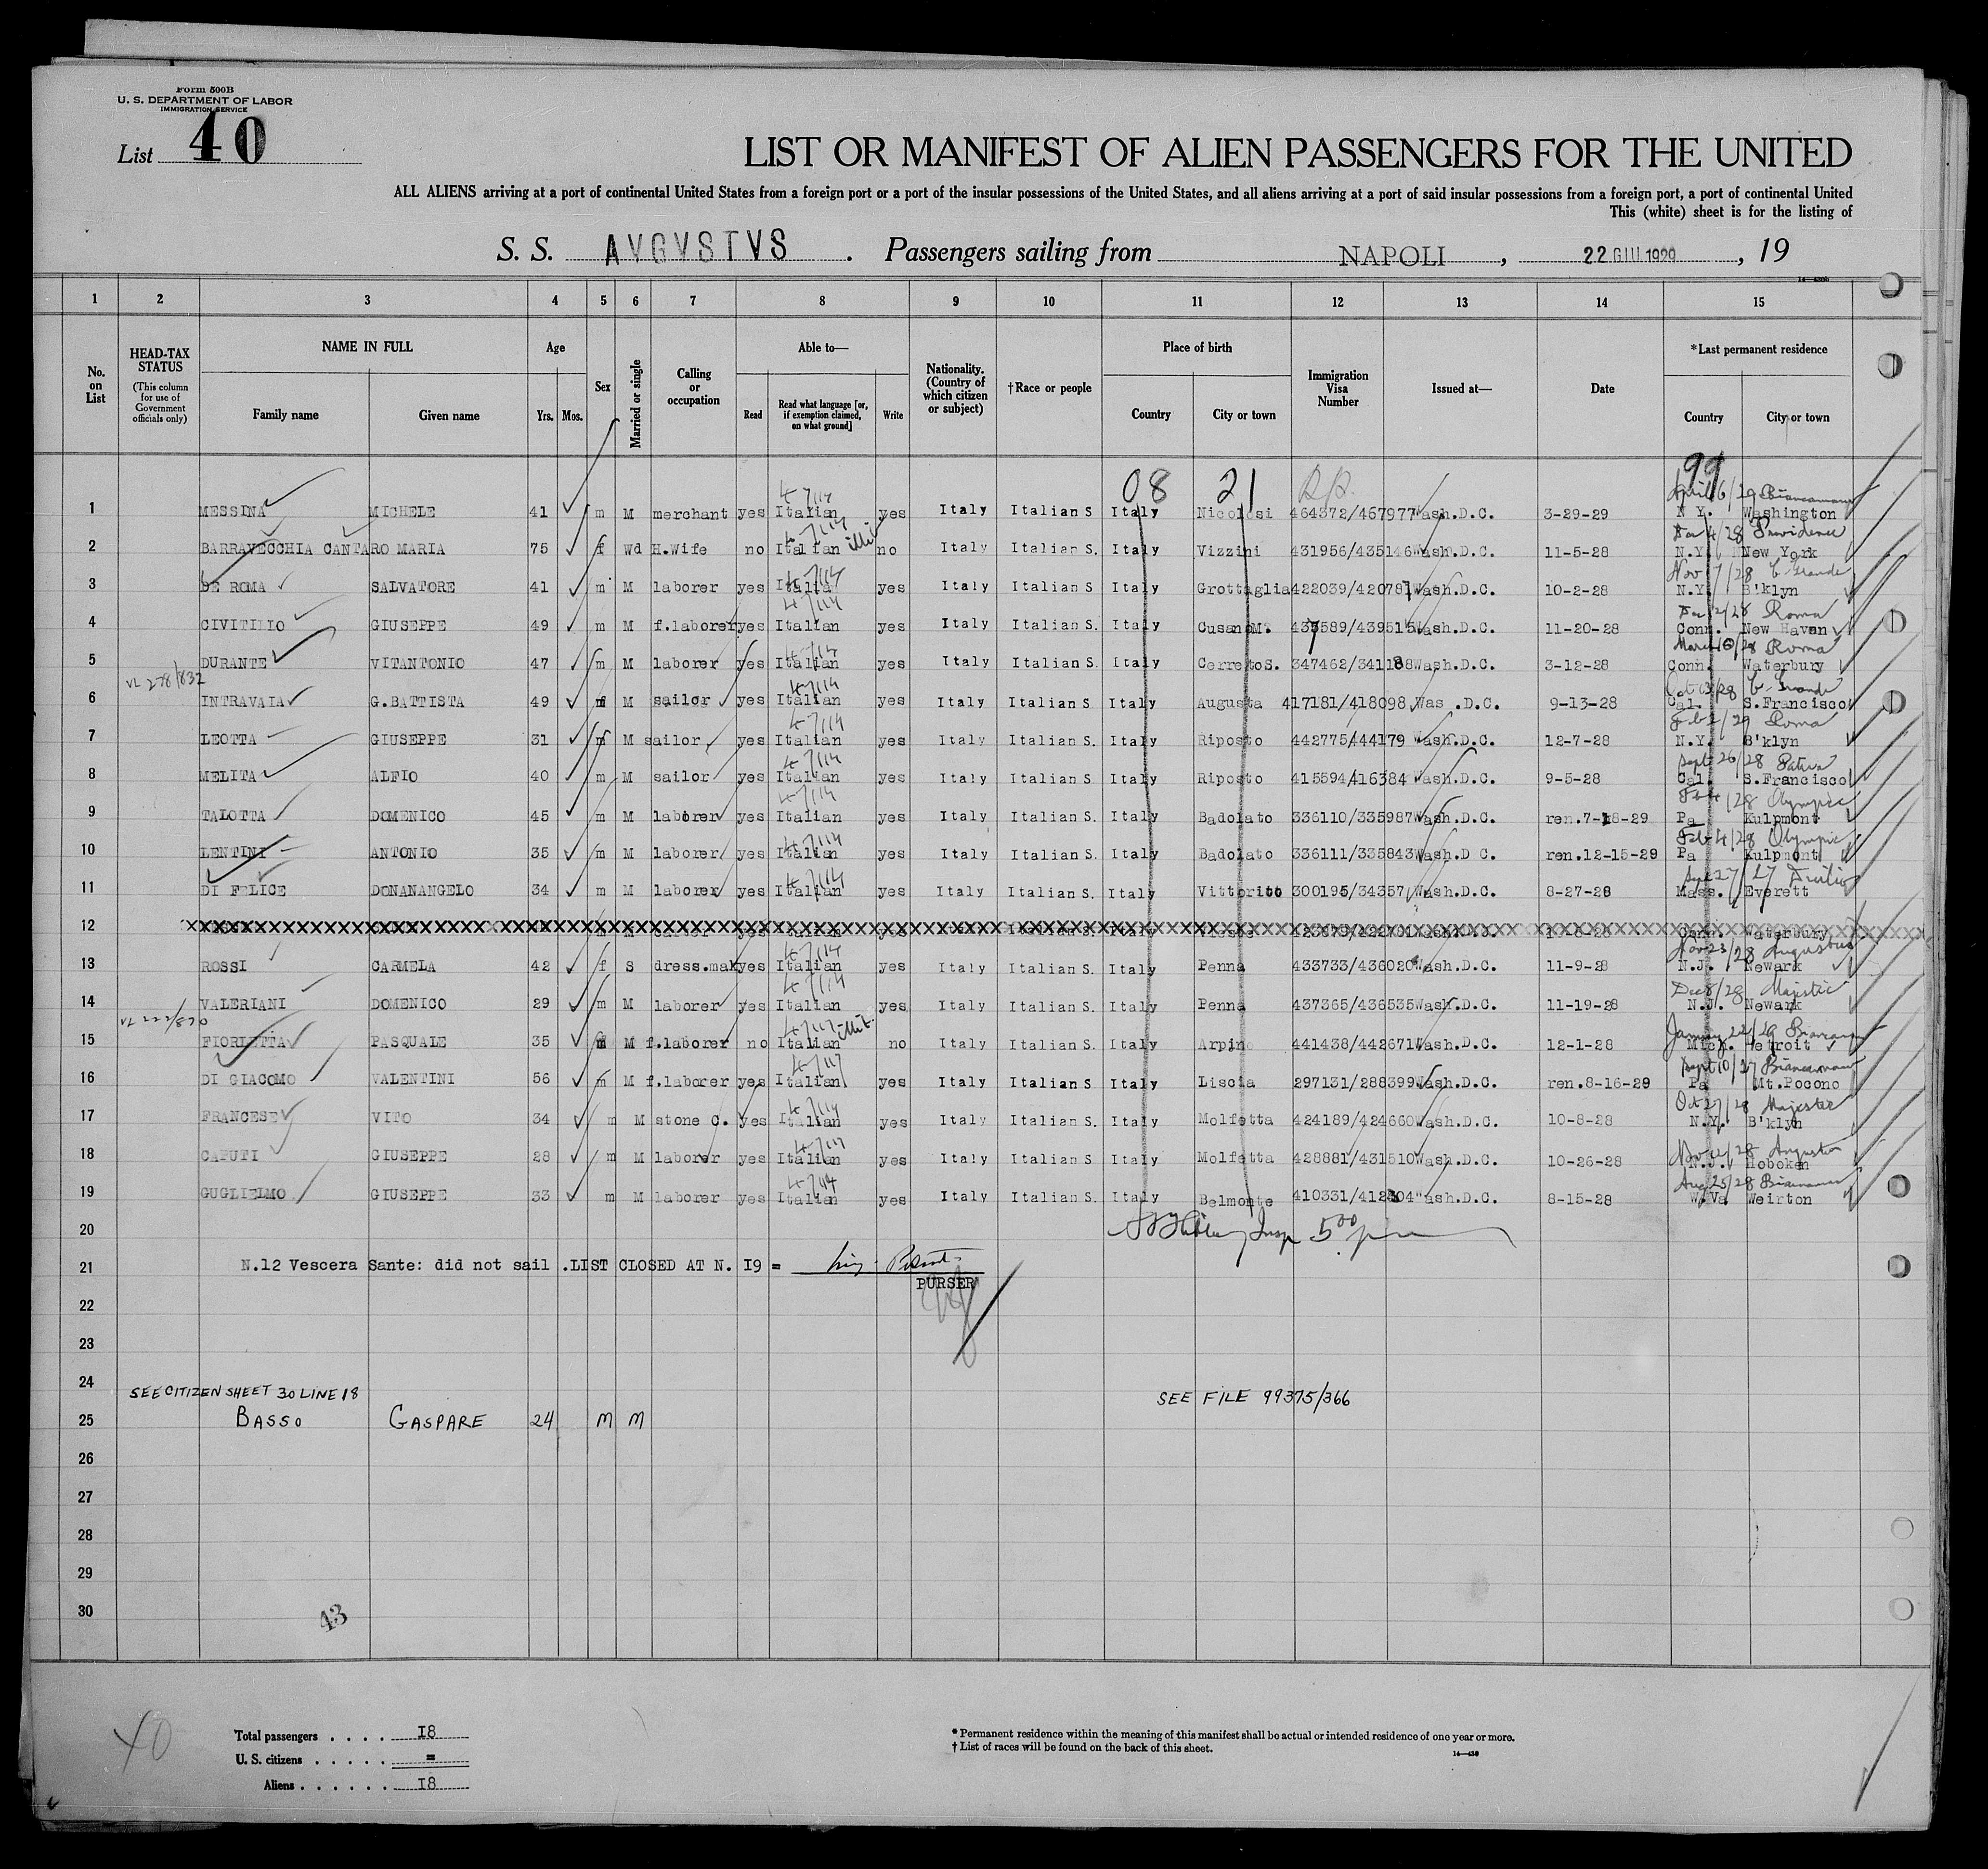 Form 500B
U. S. DEPARTMENT OF LABOR
IMMIGRATION SERVICE
List 40
LIST OR MANIFEST OF ALIEN PASSENGERS FOR THE UNITED
ALL ALIENS arriving at a port of continental United States from a foreign port or a port of the insular possessions of the United States, and all aliens arriving at a port of said insular possessions from a foreign port, a port of continental United
This (white) sheet is for the listing of
S. S. AVGVSTVS . Passengers sailing from NAPOLI , 22 GIU 1929 , 19
1 2 3 4 5 6 7 8 9 10 11 12 13 14 15
No. on List
HEAD-TAX STATUS (This column for use of Government officials only)
NAME IN FULL Family name Given name
Age Yrs. Mos.
Sex
Married or single
Calling or occupation
Able to— Read Read what language [or, if exemption claimed, on what ground] Write
Nationality. (Country of which citizen or subject)
†Race or people
Place of birth Country City or town
Immigration Visa Number
Issued at—
Date
*Last permanent residence Country City or town
08 21 99
April 6/29 Biancamano
1 MESSINA MICHELE 41 m M merchant yes Italian yes Italy Italian S Italy Nicolosi 464372/467977 Wash.D.C. 3-29-29 N Y. Washington
4/28 Providence
2 BARRAVECCHIA CANTARO MARIA 75 f Wd H.Wife no Italian illit no Italy Italian S. Italy Vizzini 431956/435146 Wash.D.C. 11-5-28 N.Y. New York
Nov 7/28 C. Grande
3 DE ROMA SALVATORE 41 m M laborer yes Italian yes Italy Italian S Italy Grottaglia 422039/420781 Wash.D.C. 10-2-28 N.Y. B'klyn
2/28 Roma
4 CIVITILIO GIUSEPPE 49 m M f.laborer yes Italian yes Italy Italian S Italy Cusano M. 437589/439515 Wash.D.C. 11-20-28 Conn. New Haven
March /28 Roma
5 DURANTE VITANTONIO 47 m M laborer yes Italian yes Italy Italian S. Italy Cerreto S. 347462/341188 Wash.D.C. 3-12-28 Conn. Waterbury
VL 278/832
Oct /28 C. Grande
6 INTRAVAIA G.BATTISTA 49 m M sailor yes Italian yes Italy Italian S Italy Augusta 417181/418098 Was .D.C. 9-13-28 Cal. S.Francisco
Feb 2/29 Roma
7 LEOTTA GIUSEPPE 31 m M sailor yes Italian yes Italy Italian S. Italy Riposto 442775/444179 Wash.D.C. 12-7-28 N.Y. B'klyn
Sept 26/28 Patria
8 MELITA ALFIO 40 m M sailor yes Italian yes Italy Italian S. Italy Riposto 415594/416384 Wash.D.C. 9-5-28 Cal. S.Francisco
Feb 4/28 Olympic
9 TALOTTA DOMENICO 45 m M laborer yes Italian yes Italy Italian S. Italy Badolato 336110/335987 Wash.D.C. ren.7-18-29 Pa Kulpmont
Feb 4/28 Olympic
10 LENTINI ANTONIO 35 m M laborer yes Italian yes Italy Italian S. Italy Badolato 336111/335843 Wash.D C. ren.12-15-29 Pa Kulpmont
Sept 27/27 Duilio
11 DI FELICE DONANANGELO 34 m M laborer yes Italian yes Italy Italian S. Italy Vittorito 300195/34357 Wash.D.C. 8-27-28 Mass. Everett
12 Italian Conn. Waterbury
Nov 23/28 Augustus
13 ROSSI CARMELA 42 f S dress.mak yes Italian yes Italy Italian S. Italy Penna 433733/436020 Wash.D.C. 11-9-28 N.J. Newark
Dec 8/28 Majestic
14 VALERIANI DOMENICO 29 m M laborer yes Italian yes Italy Italian S. Italy Penna 437365/436535 Wash.D.C. 11-19-28 N.J. Newark
VL 222/870
January 22/29 Biancamano
15 FIORLETTA PASQUALE 35 m M f.laborer no Italian illit. no Italy Italian S. Italy Arpino 441438/442671 Wash.D.C. 12-1-28 Mich. Detroit
Sept 10/27 Biancamano
16 DI GIACOMO VALENTINI 56 m M f.laborer yes Italian yes Italy Italian S Italy Liscia 297131/288399 Wash.D.C. ren.8-16-29 Pa Mt.Pocono
Oct 27/28 Majestic
17 FRANCESE VITO 34 m M stone C. yes Italian yes Italy Italian S. Italy Molfetta 424189/424660 Wash.D.C. 10-8-28 N.Y. B'klyn
Nov /28 Augustus
18 CAPUTI GIUSEPPE 28 m M laborer yes Italian yes Italy Italian S Italy Molfetta 428881/431510 Wash.D.C. 10-26-28 N.J. Hoboken
Aug 25/28 Biancamano
19 GUGLIELMO GIUSEPPE 33 m M laborer yes Italian yes Italy Italian S. Italy Belmonte 410331/412304 Wash.D.C. 8-15-28 W.Va Weirton
20 Insp 5 00 pm
21 N.12 Vescera Sante: did not sail .LIST CLOSED AT N. I9 =
PURSER
22
23
24
SEE CITIZEN SHEET 30 LINE 18 SEE FILE 99375/366
25 BASSO GASPARE 24 M M
26
27
28
29
30
43
40
Total passengers . . . . I8
U. S. citizens . . . . . =
Aliens . . . . . . I8
* Permanent residence within the meaning of this manifest shall be actual or intended residence of one year or more.
† List of races will be found on the back of this sheet.